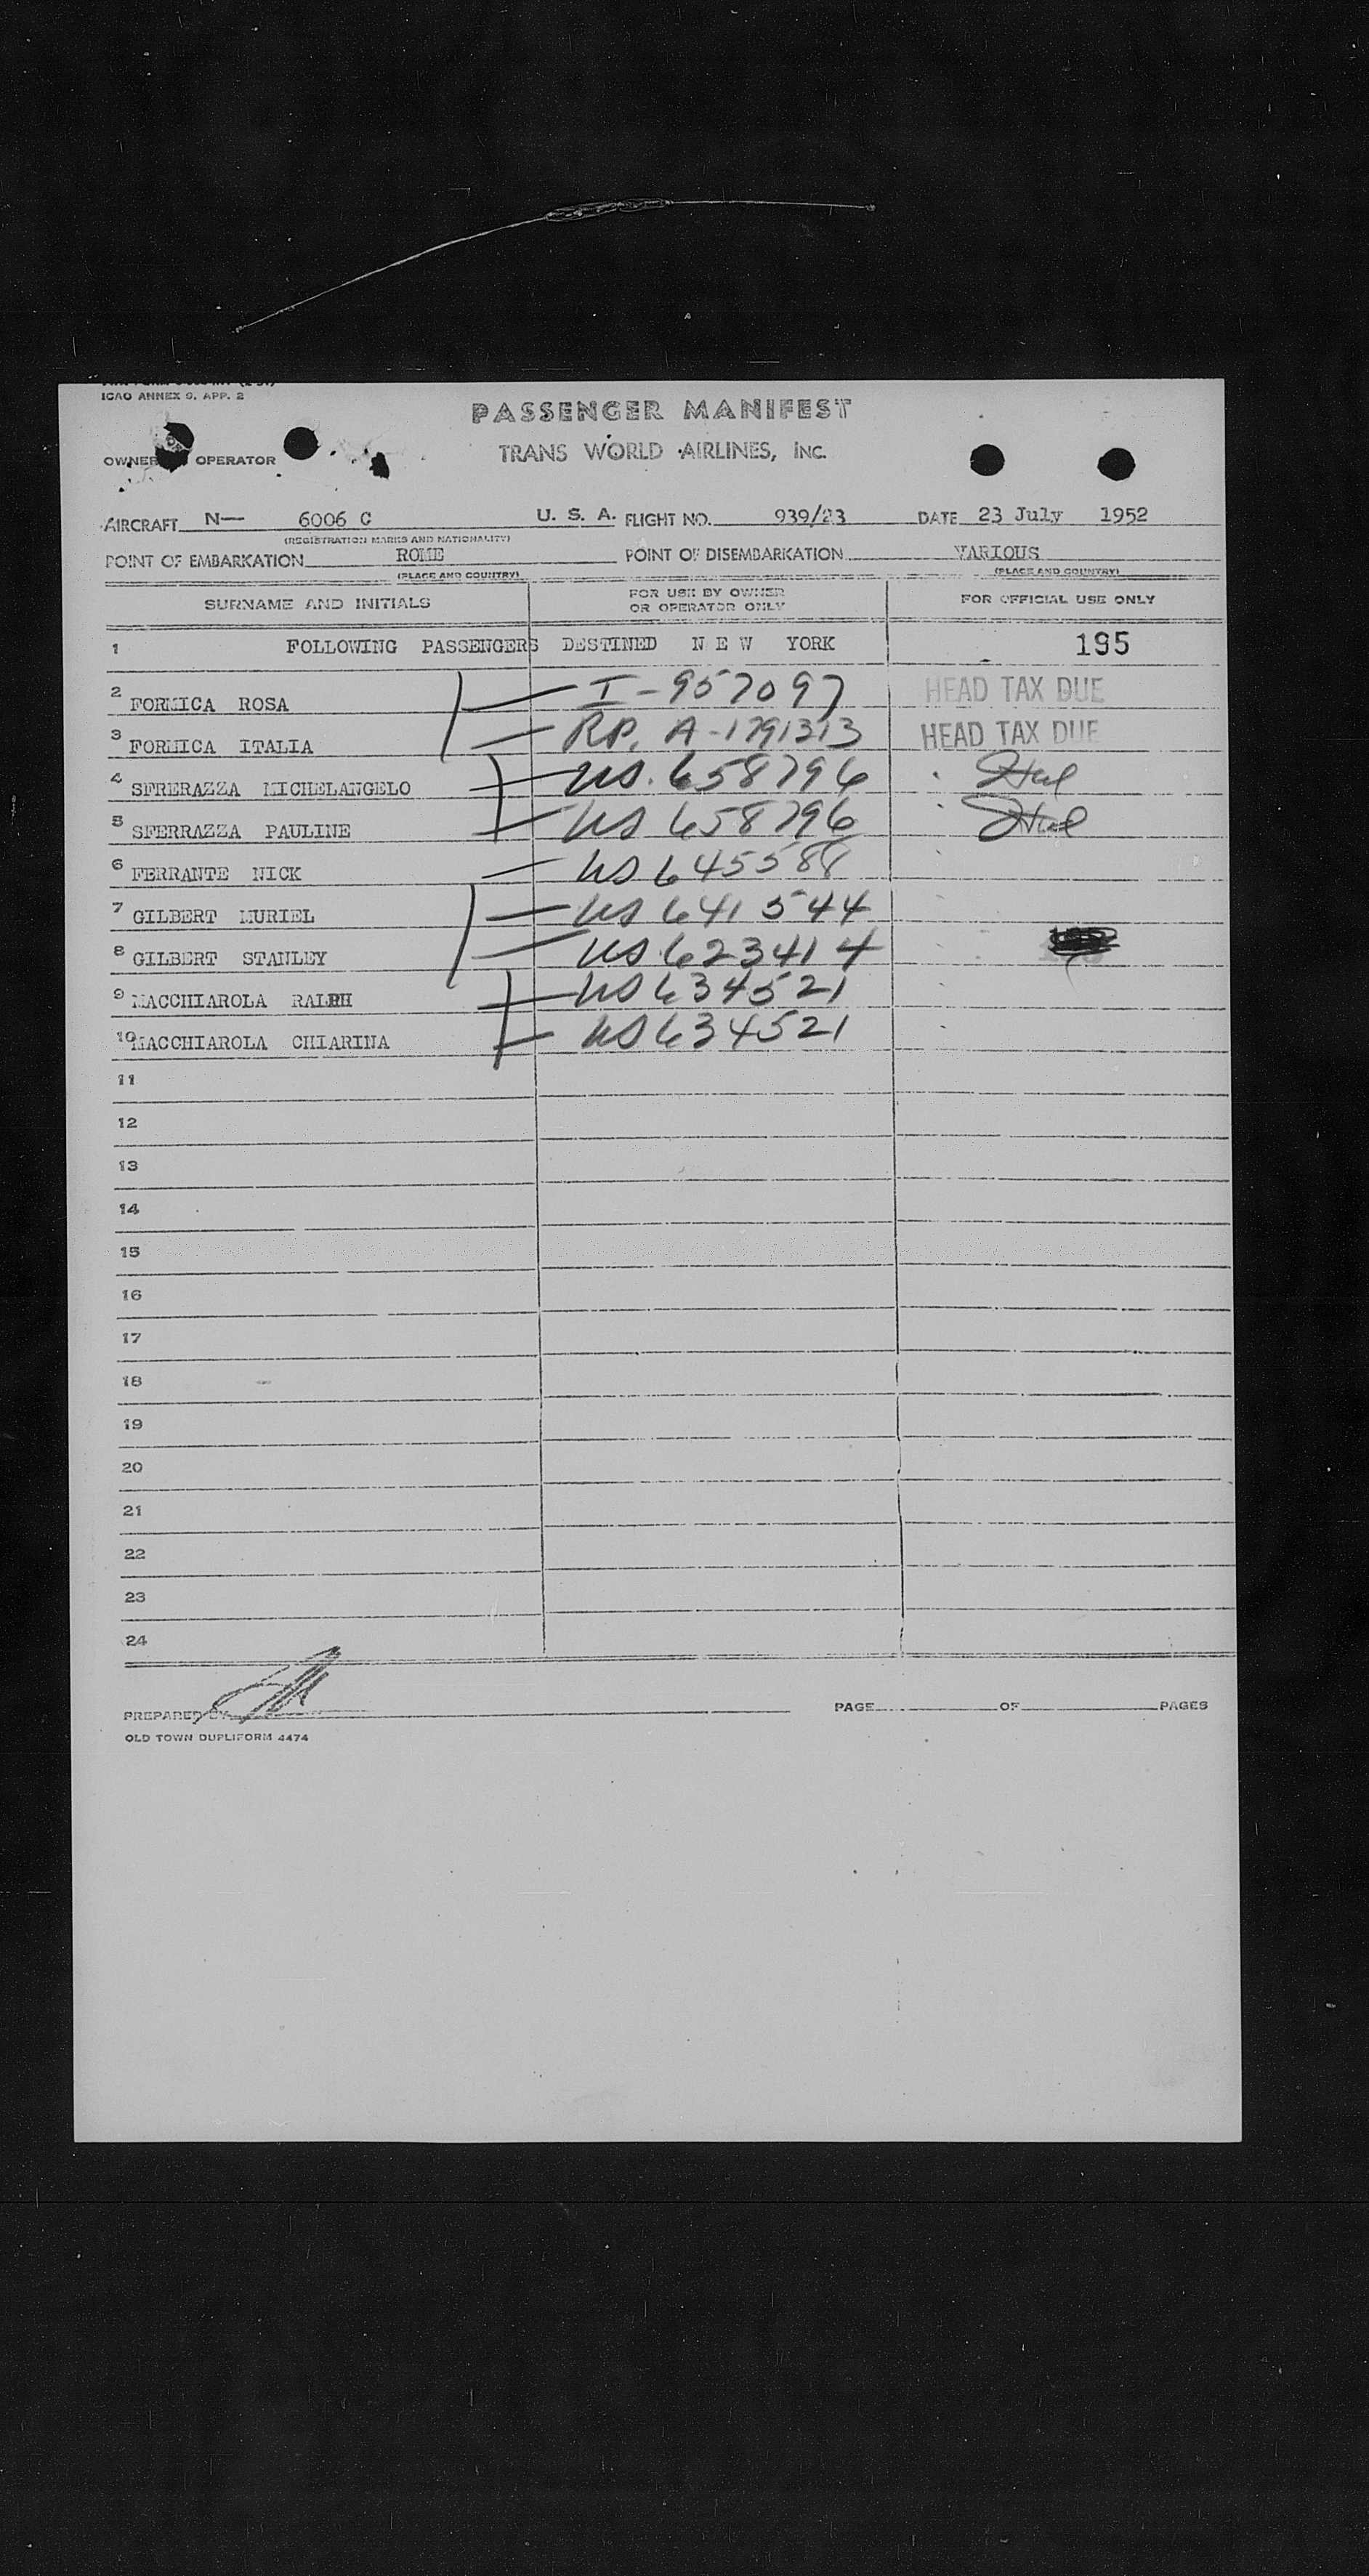 ICAO ANNEX 9, APP. 2
PASSENGER MANIFEST
TRANS WORLD AIRLINES, INC.
OWNER OPERATOR
AIRCRAFT N— 6006 C U. S. A. FLIGHT NO. 939/23 DATE 23 July 1952
(REGISTRATION MARKS AND NATIONALITY)
POINT OF EMBARKATION ROME POINT OF DISEMBARKATION VARIOUS
(PLACE AND COUNTRY) (PLACE AND COUNTRY)
SURNAME AND INITIALS FOR USE BY OWNER OR OPERATOR ONLY FOR OFFICIAL USE ONLY
1 FOLLOWING PASSENGERS DESTINED N E W YORK 195
2 FORMICA ROSA I-957097 HEAD TAX DUE
3 FORMICA ITALIA RP. A-1791313 HEAD TAX DUE
4 SFRERAZZA MICHELANGELO US. 658796
5 SFERRAZZA PAULINE US 658796
6 FERRANTE NICK US 645588
7 GILBERT MURIEL US 641544
8 GILBERT STANLEY US 623414
9 MACCHIAROLA RALPH US 634521
10 MACCHIAROLA CHIARINA US 634521
11
12
13
14
15
16
17
18
19
20
21
22
23
24
PREPARED BY PAGE OF PAGES
OLD TOWN DUPLIFORM 4474